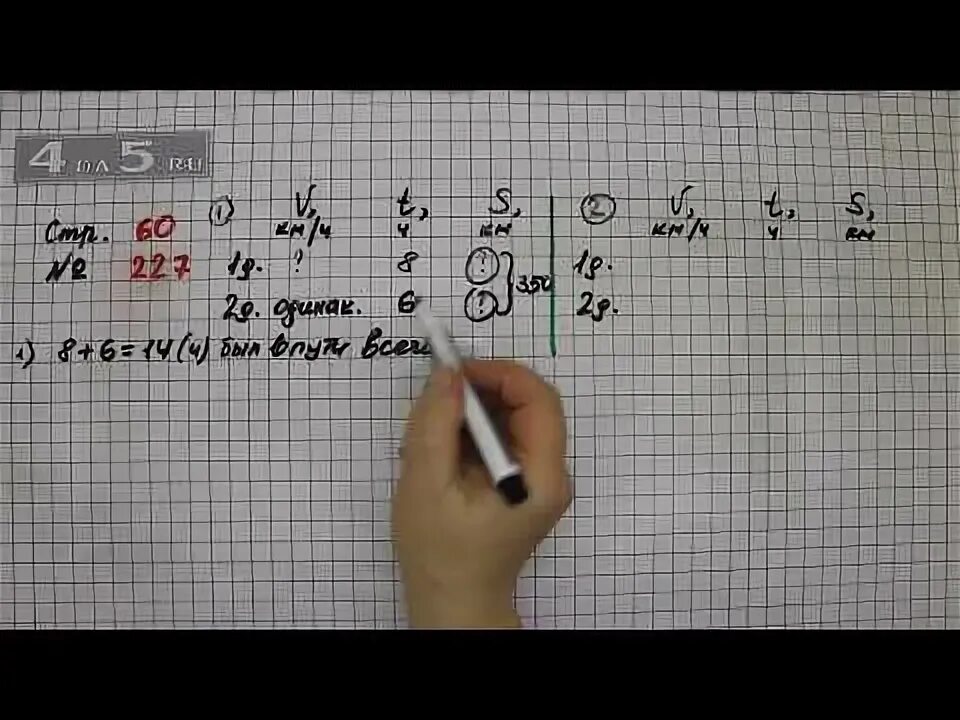 4 на 5.RU
Стр. 60 ① V, t, S, ② V, t, S,
км/ч ч км км/ч ч км
№ 227 1д. ? 8 ? 350 1д.
2д. одинак. 6 ? 2д.
1) 8+6=14(ч) был в пути всего